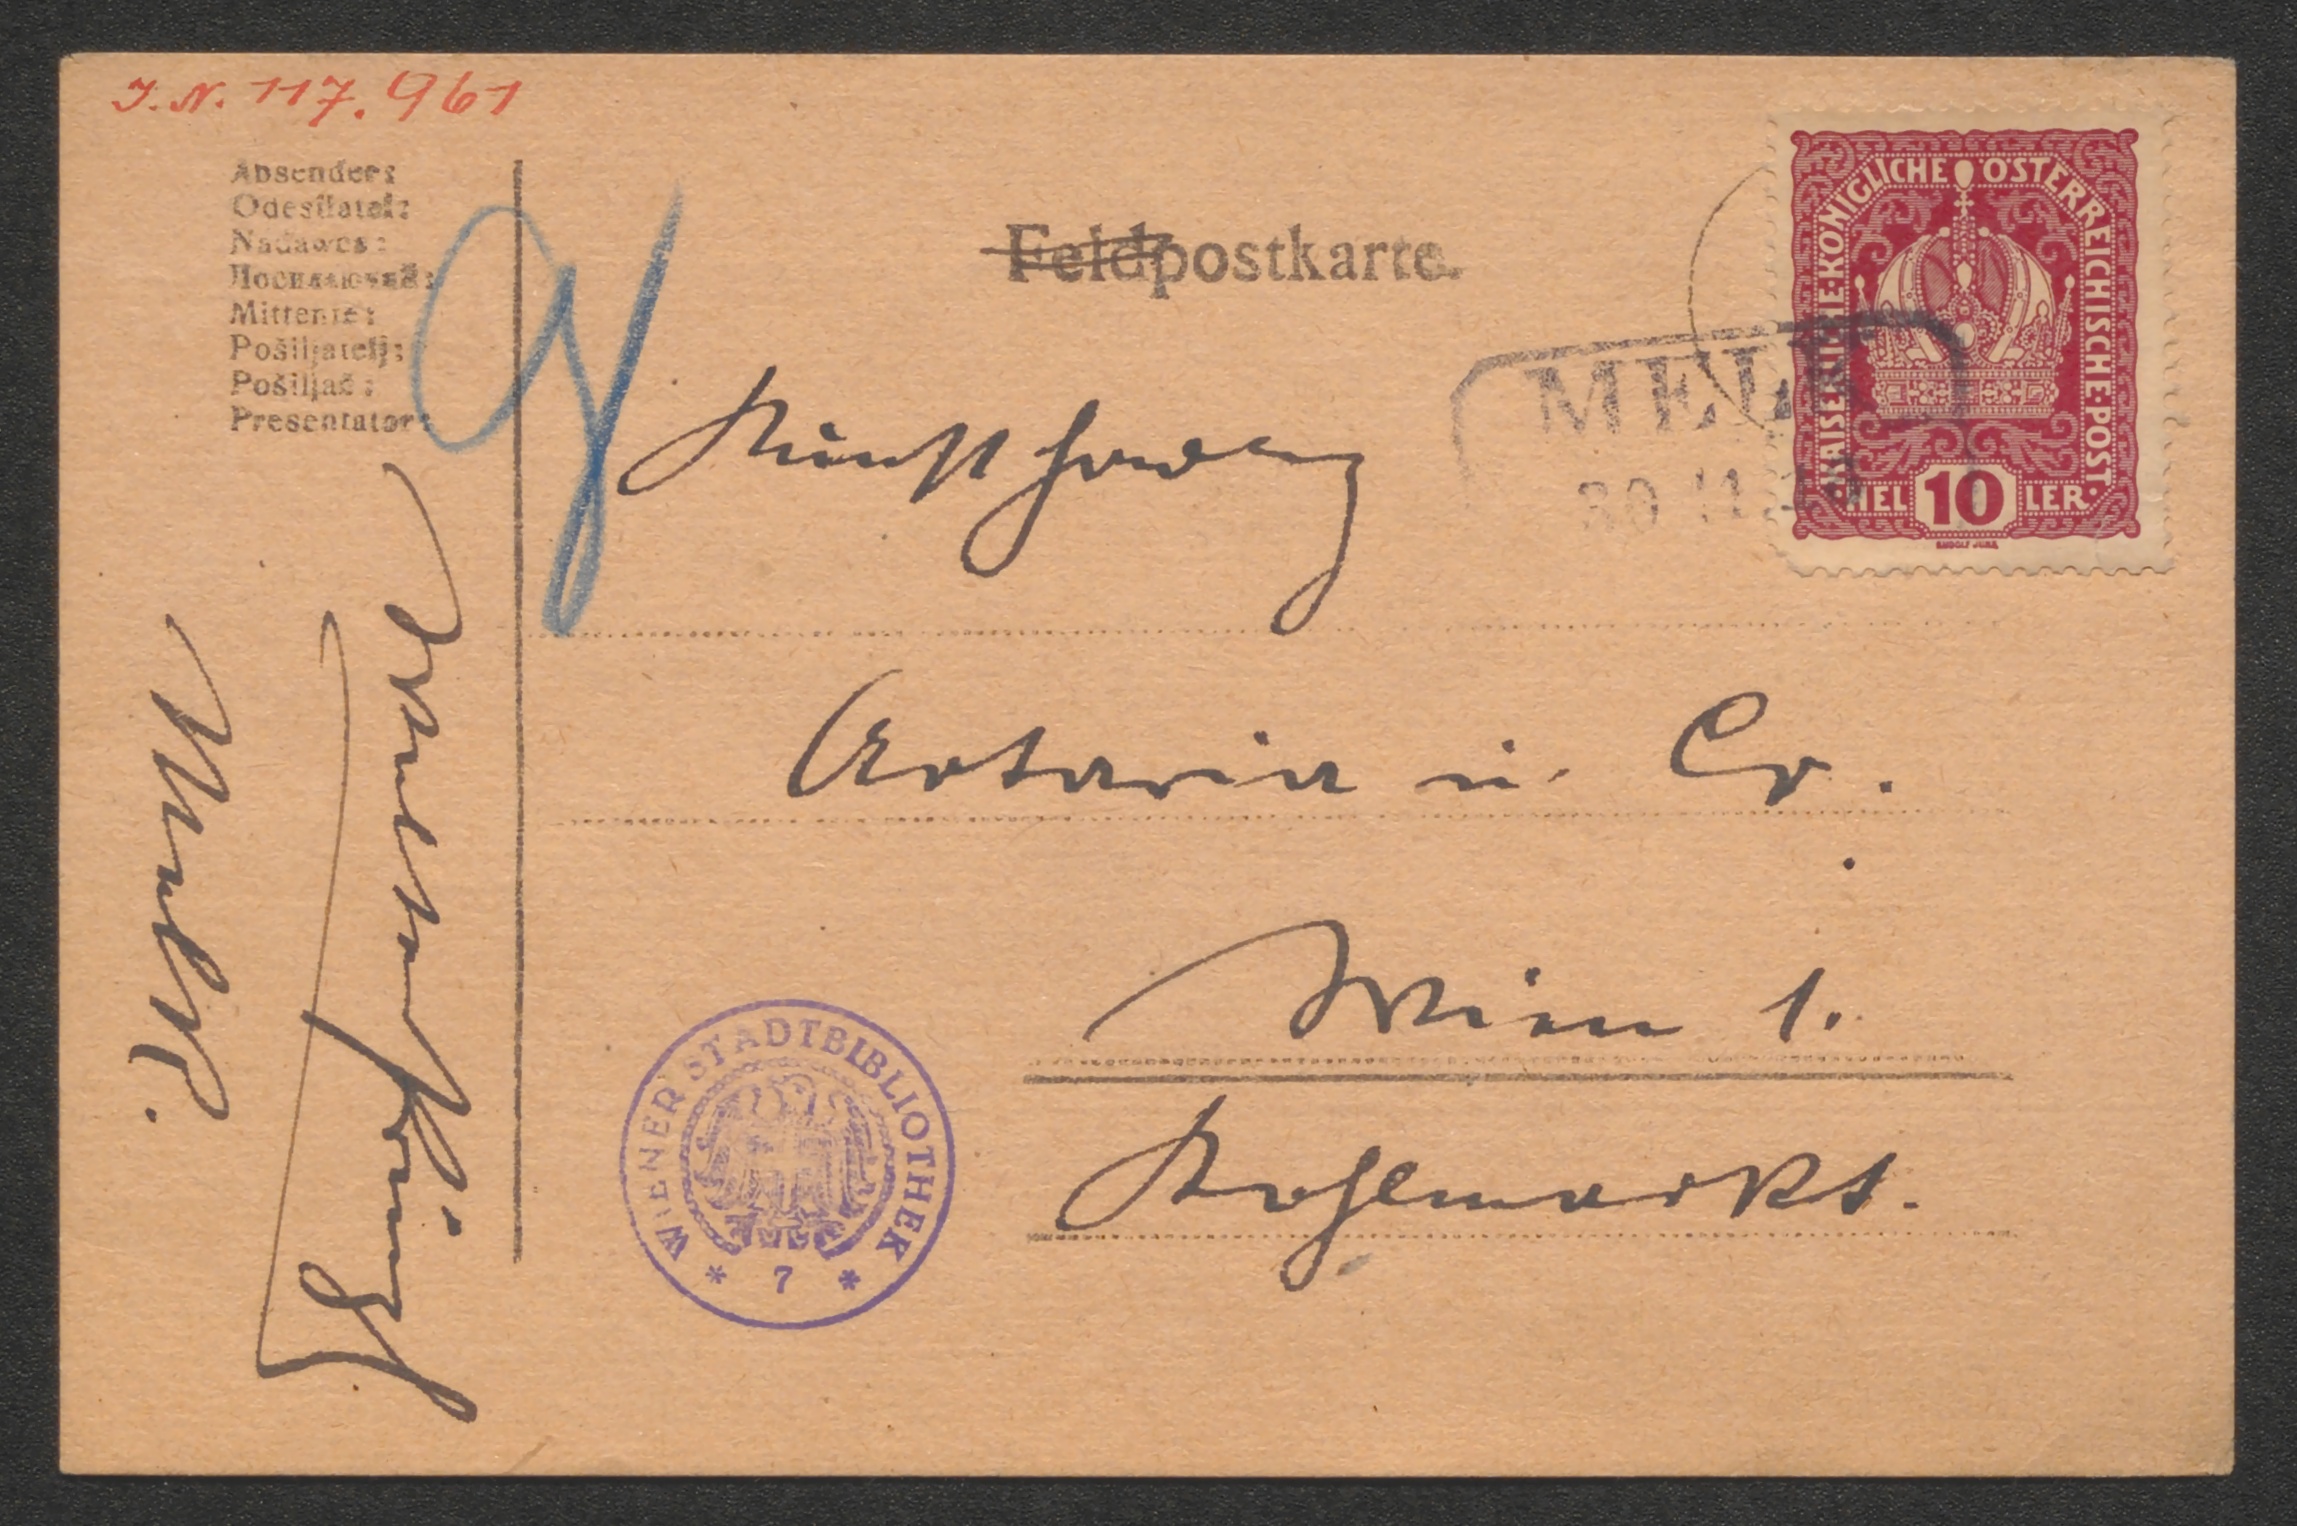 I.N. 117.961
Absender:
Odesílatel:
Nadawca:
Посилаючий:
Mittente:
Pošiljatelj:
Pošiljač:
Presentator:
Feldpostkarte.
KAISERLICHE·KÖNIGLICHE ÖSTERREICHISCHE·POST
HEL 10 LER
RUDOLF JUNK
MELK
30 11
Kunsthandlg
Artaria u. Co.
Wien 1.
Kohlmarkt.
Melk.
WIENER STADTBIBLIOTHEK
* 7 *